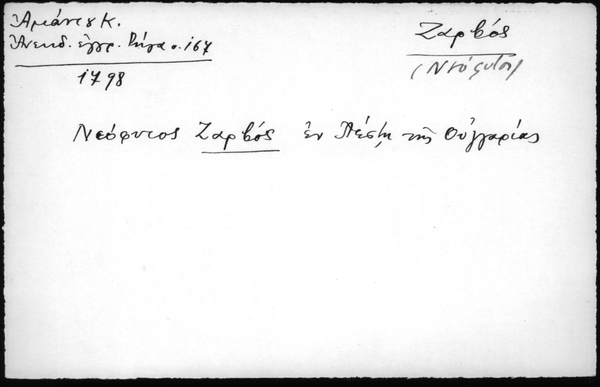 Ἀμάντου Κ.
Ἀνέκδ. ἔγγρ. Ρήγα σ. 167
1798
Ζαρβός
(Νεόφυτος)
Νεόφυτος Ζαρβός ἐν Πέστῃ τῆς Οὐγγαρίας